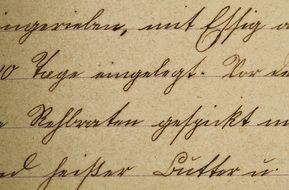 ingerieben, mit Essig
0 Tage eingelegt. Vor
Rehbraten gespickt
heißer Butter u.